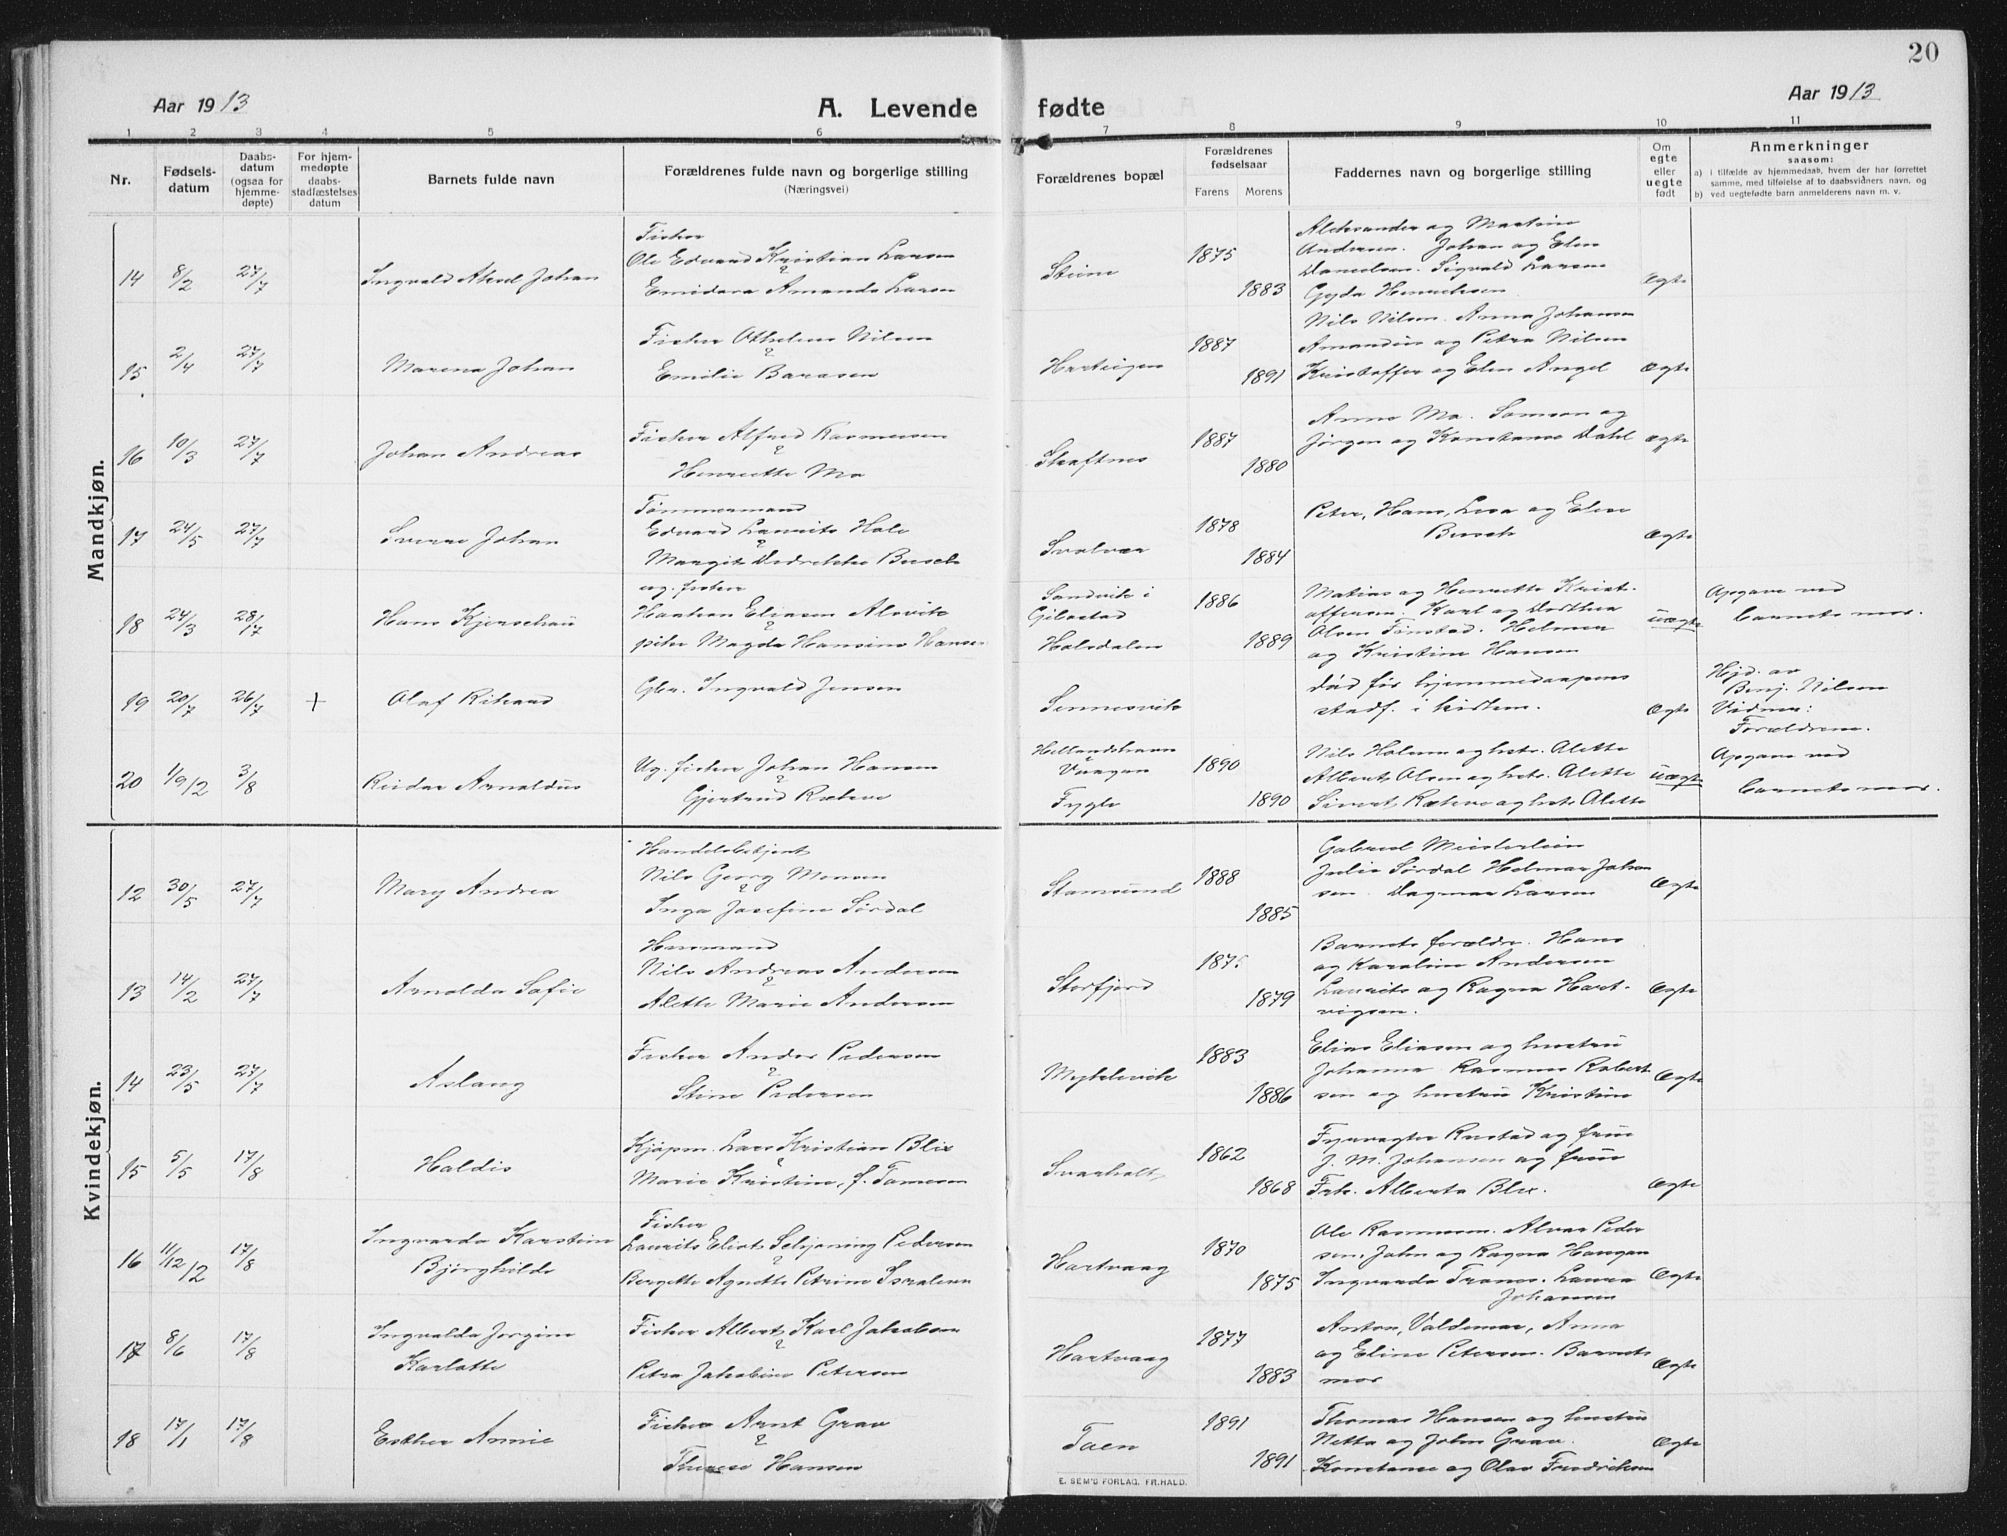 20
Aar 1913
A. Levende fødte
Aar 1913
1 2 3 4 5 6 7 8 9 10 11
Nr.
Fødsels-
datum
Daabs-
datum
(ogsaa for
hjemme-
døpte)
For hjem-
medøpte
daabs-
stadfæstelses
datum
Barnets fulde navn
Forældrenes fulde navn og borgerlige stilling
(Næringsvei)
Forældrenes bopæl
Forældrenes
fødselsaar
Farens Morens
Faddernes navn og borgerlige stilling
Om
egte
eller
uegte
født
Anmerkninger
saasom:
a) i tilfælde av hjemmedaab, hvem der har forrettet
samme, med tilføielse af to daabsvidners navn, og
b) ved uegtefødte barn anmelderens navn m. v.
Mandkjøn.
14 8/2 27/7 Ingvald Aksel Johan
Fisker
Ole Edvard Kristian Larsen
Amanda Larsen
Steine
1875
1883
Aleksander og Martine
Andersen. Johan og Elen
Danielsen. Sigvald Larsen
Gyda Henriksen
Ægte
15 2/4 27/7 Marena Johan
Fisker Othelius Nilsen
Emilie
1887
1891
Nils Nilsen. Anna Johansen
og Petra Nilsen
Kristoffer og Elen Angel
Ægte
16 10/3 27/7 Johan Andreas
Fisker Alfred Rasmussen
Henriette Mo
1887
1880
Anna Mo. Samson og
Jørgen og Konstanse Dahl
ægte
17 24/5 27/7 Sverre Johan
Tømmermand
Edvard Laurits Hole
Margit Busch
Svolvær
1878
1884
Peter, Hans, og Elen
Busch
Ægte
18 24/3 28/7 Hans
ug. fisker
Eliasen Alsvik
pike Magda Hansine Hansen
Sandvik i
Gibostad
Holsdalen
1886
1889
Matias og Henriette Krist-
offersen. Karl og Dorthea
Olsen. Helmer
og Kristine Hansen
uægte
Opgave ved
barnets mor.
19 20/7 26/7 + Olaf Rikard
Gbr. Ingvald Jensen
Sennesvik
død før hjemmedaapens
stadf. i kirken.
Ægte
Hjd. av
Benj. Nilsen
Vidner:
Forældrene.
20 1/9/12 3/8 Reidar Arnoldus
Ug. fisker Johan Hansen
Gjertrud
Vaagan
Fygle
1890
1890
Nils og hstr. Alette
Albert Olsen og hstr. Alette
Sivert og hstr. Alette
uægte
Opgave ved
barnets mor.
Kvindekjøn.
12 30/5 27/7 Mary Andrea
Handelsbetjent
Nils Georg Monsen
Inga Josefine Sørdal
Stamsund
1888
1885
Gabriel
Julie Sørdal Helmer Johan
sen Dagmar Larsen
Ægte
13 14/2 27/7 Arnolda Sofie
Husmand
Nils Andreas Andersen
Alette Marie Andersen
Storfjord
1875
1879
Barnets forældre. Hans
og Karoline Andersen
Laurits og Ragna Hart-
vigsen.
Ægte
14 23/5 27/7 Aslaug
Fisker Andor Pedersen
Stine Pedersen
Myklevik
1883
1886
Elias Eliasen og hustru
Johanna Rasmus Robert
sen og hustru Kristine
Ægte
15 5/5 17/8 Haldis
Kjøpm. Lars Kristian Blix
Marie Kristine, f.
Svarholt
1862
1868
Fyrvogter Rustad og frue
J. M. Johansen og frue
Frk. Alberta Blix.
Ægte
16 11/12/12 17/8 Ingvarda Karstine
Bjørghilda
Fisker
Laurits Eliot Pedersen
Bergette Agnette Petrine
Hartvaag
1870
1875
Ole Rasmussen. Alvar Peder
sen. John og Ragna Haugan
Ingvarda. Laura
Johansen
Ægte
17 8/6 17/8 Ingvalda Jørgine
Karlotte
Fisker Albert Karl Jakobsen
Petra Jakobine Petersen
Hartvaag
1877
1883
Anton, Valdemar, Anna
og Eline Petersen. Barnets
mor
Ægte
18 17/1 17/8 Esther Annie
Fisker Arnt Grav
Therese Hansen
Taen
1891
1891
Thomas Hansen og hustru
Netta og John Grav.
Konstanse og Olav Fredriksen
Ægte
E. SEM'S FORLAG, FR.HALD.